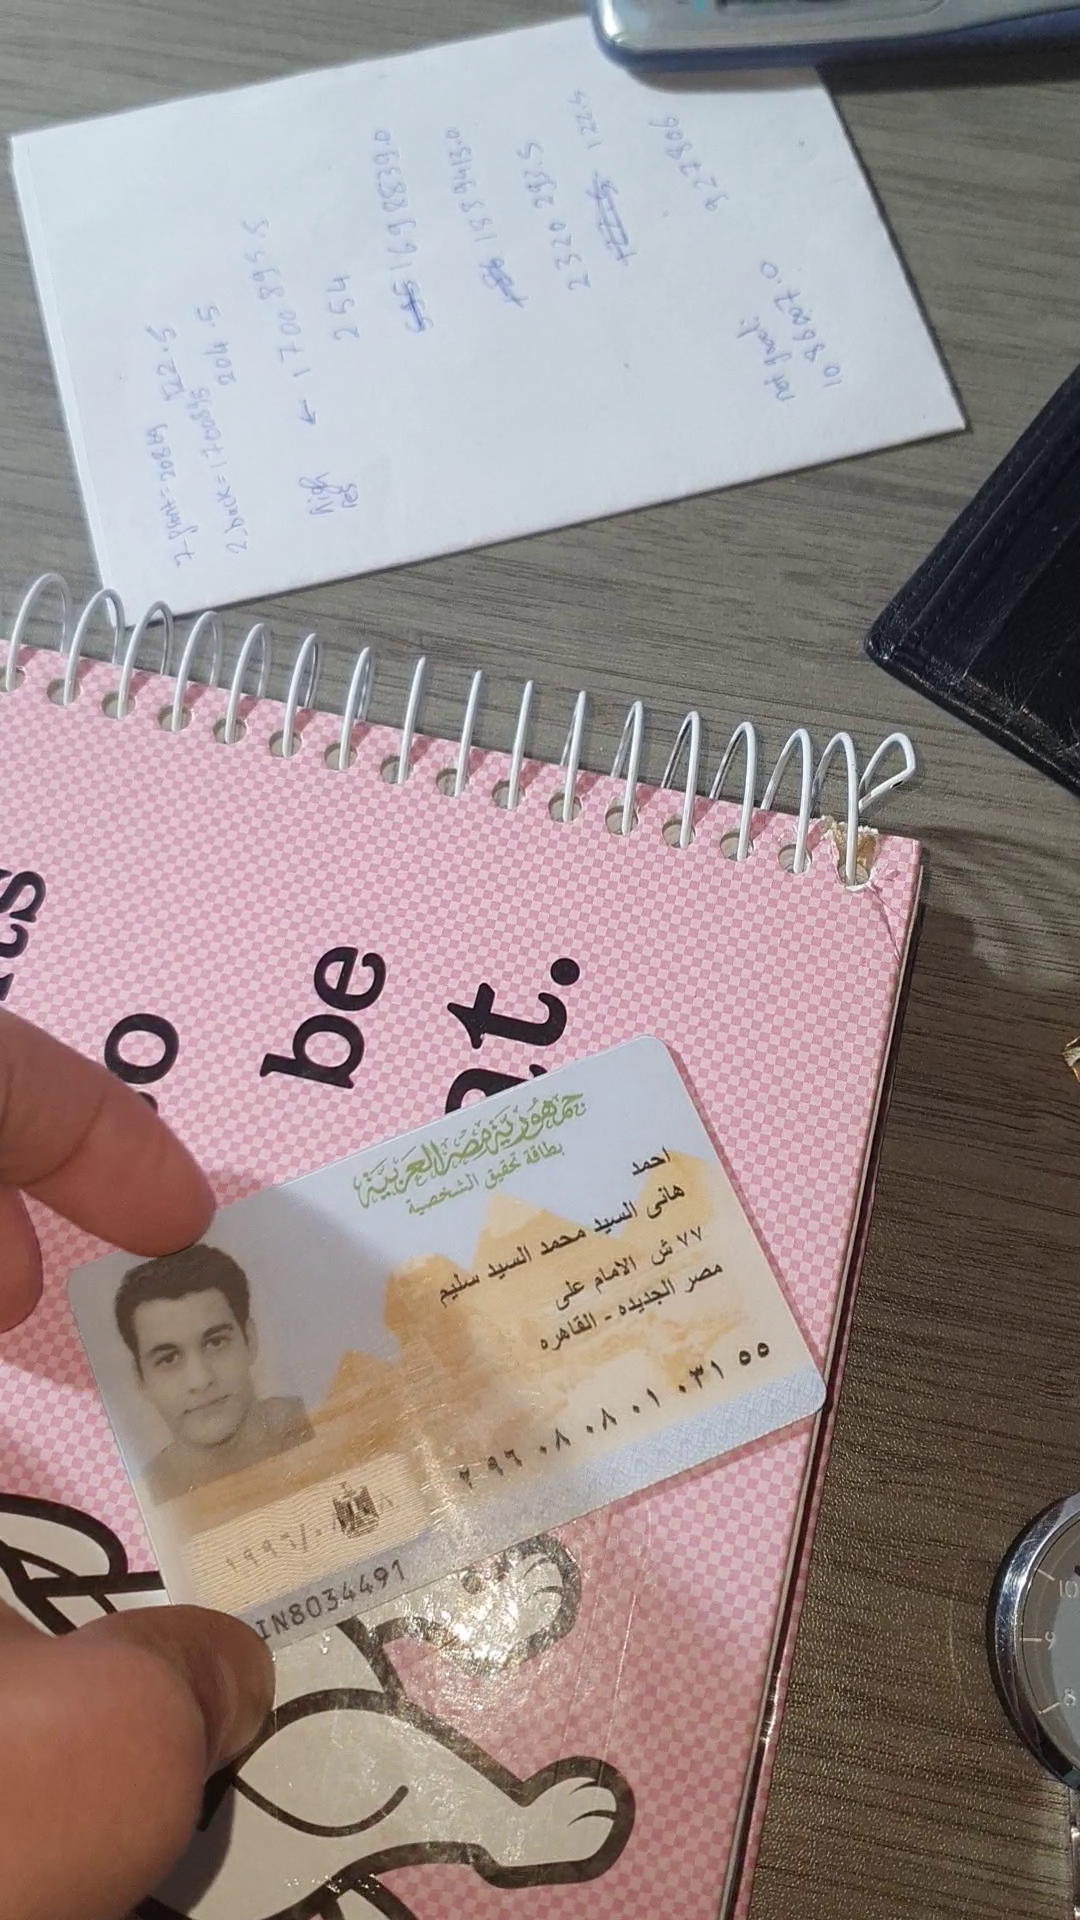 7-front=20869 122.5
2.back=1700895 204.5
high res ← 1700895.5
254
1698839.0
1559413.0
2320292.5
122.5
927806
not good:
1096007.0
be
at.
جمهورية مصر العربية
بطاقة تحقيق الشخصية
احمد
هانى السيد محمد السيد سليم
٧٧ ش الامام على
مصر الجديده - القاهره
٢ ٩٦ ٠٨ ٠٨ ٠١ ٠٣١ ٥٥
IN8034491
10
9
8